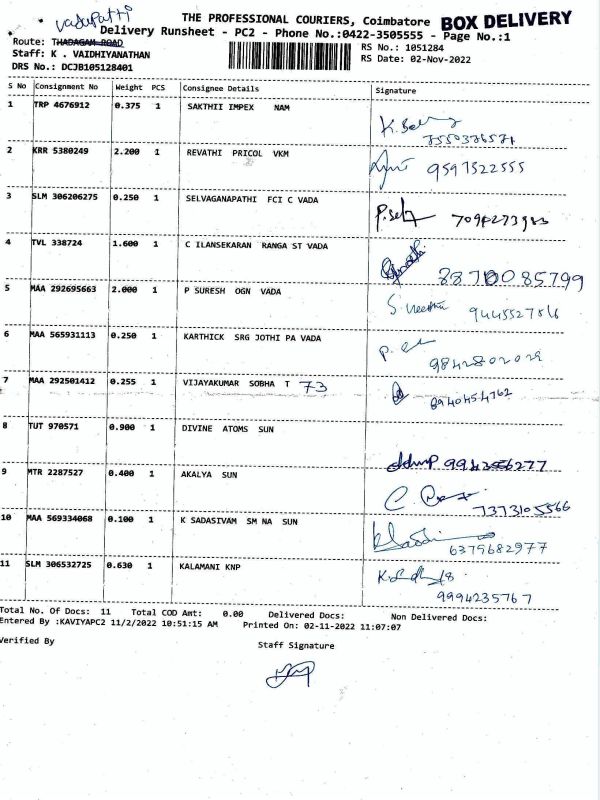 vadapatti
THE PROFESSIONAL COURIERS, Coimbatore BOX DELIVERY
Delivery Runsheet - PC2 - Phone No.:0422-3505555 - Page No.:1
Route: THADAGAM ROAD
RS No.: 1051284
Staff: K . VAIDHIYANATHAN
RS Date: 02-Nov-2022
DRS No.: DCJB105128401
S No Consignment No Weight PCS Consignee Details Signature
1 TRP 4676912 0.375 1 SAKTHII IMPEX NAM
7550376571
2 KRR 5380249 2.200 1 REVATHI PRICOL VKM
9597522555
3 SLM 306206275 0.250 1 SELVAGANAPATHI FCI C VADA
P.Sel
4 TVL 338724 1.600 1 C ILANSEKARAN RANGA ST VADA
5 MAA 292695663 2.000 1 P SURESH OGN VADA
9445527516
6 MAA 565931113 0.250 1 KARTHICK SRG JOTHI PA VADA
9842802029
7 MAA 292501412 0.255 1 VIJAYAKUMAR SOBHA T 73
8940454762
8 TUT 970571 0.900 1 DIVINE ATOMS SUN
9 MTR 2287527 0.400 1 AKALYA SUN
7373105566
10 MAA 569334068 0.100 1 K SADASIVAM SM NA SUN
6379682977
11 SLM 306532725 0.630 1 KALAMANI KNP
9994235767
Total No. Of Docs: 11 Total COD Amt: 0.00 Delivered Docs: Non Delivered Docs:
Entered By :KAVIYAPC2 11/2/2022 10:51:15 AM Printed On: 02-11-2022 11:07:07
Verified By
Staff Signature